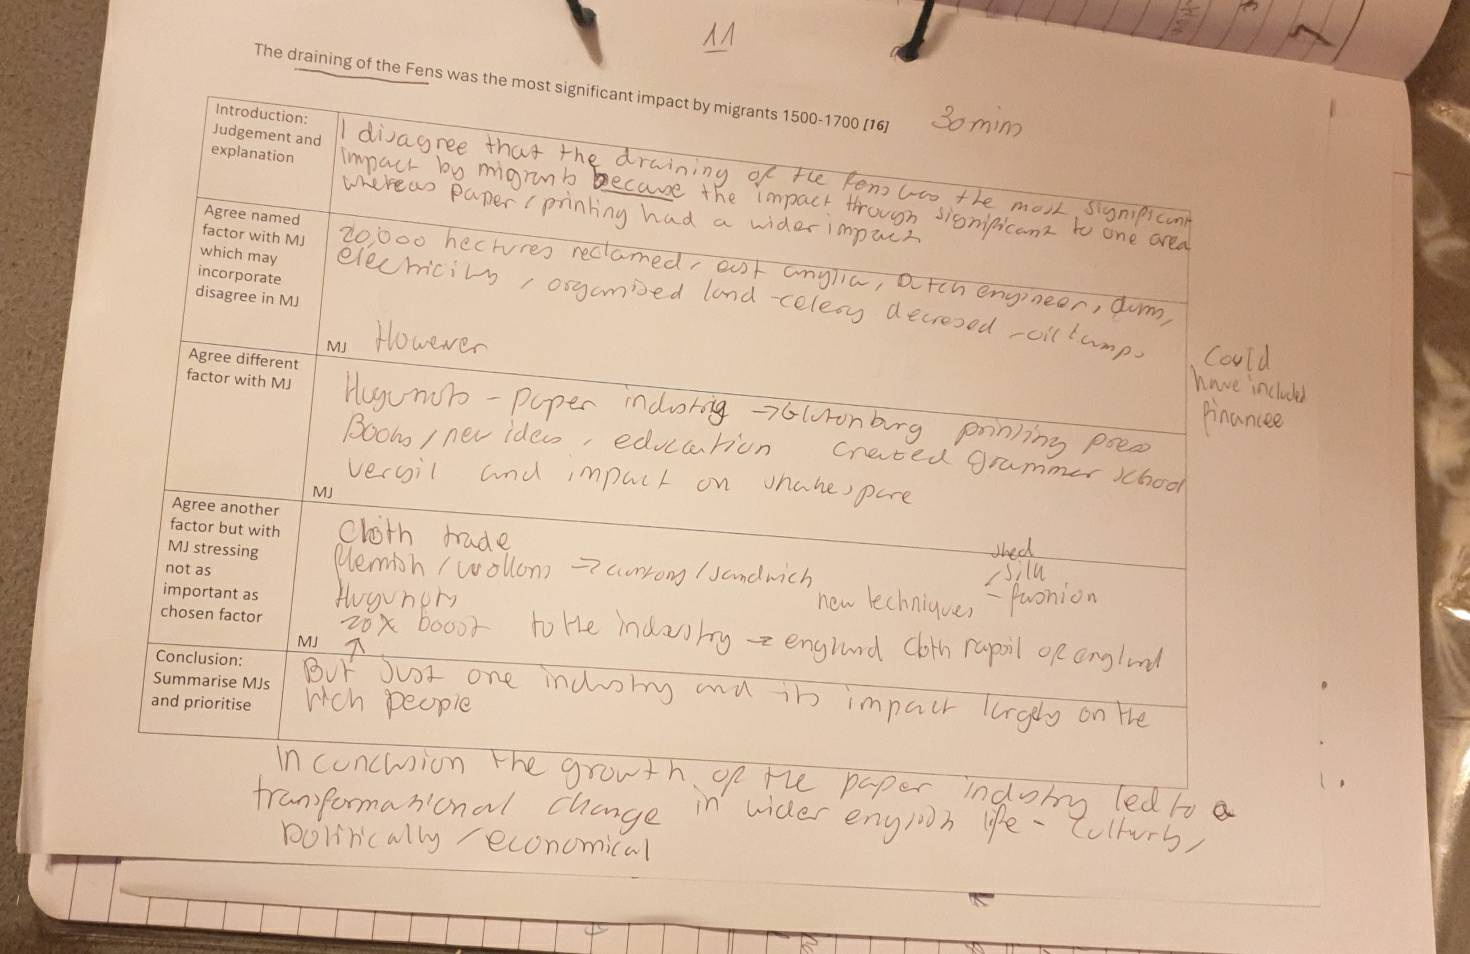 11
The draining of the Fens was the most significant impact by migrants 1500-1700 [16]
30 min
Introduction:
Judgement and
explanation
I disagree that the draining of the Fens was the most significant
impact by migrants because the impact through significant to one area
whereas paper / printing had a wider impact
Agree named
factor with MJ
which may
incorporate
disagree in MJ
20,000 hectures reclamed, east anglia, Dutch engineer, dums,
electricity, organised land - celery decresed - oil lamps
MJ However
Could
have included
financee
Agree different
factor with MJ
Hugunots - paper industrig → Glutonburg printing press
Books / new ideas, education created grammer school
vergil and impact on shakespare
MJ
Agree another
factor but with
MJ stressing
not as
important as
chosen factor
Cloth trade
Flemish / wollons → / sandwich
Hugunots
new techniques
silk
- fashion
20x boost to the indastry → england cloth of england
MJ
Conclusion:
Summarise MJs
and prioritise
But Just one industry and its impact largely on the
rich people
In conclusion the growth of the paper industry led to a
transformational change in wider english life - culturly,
politically / economical